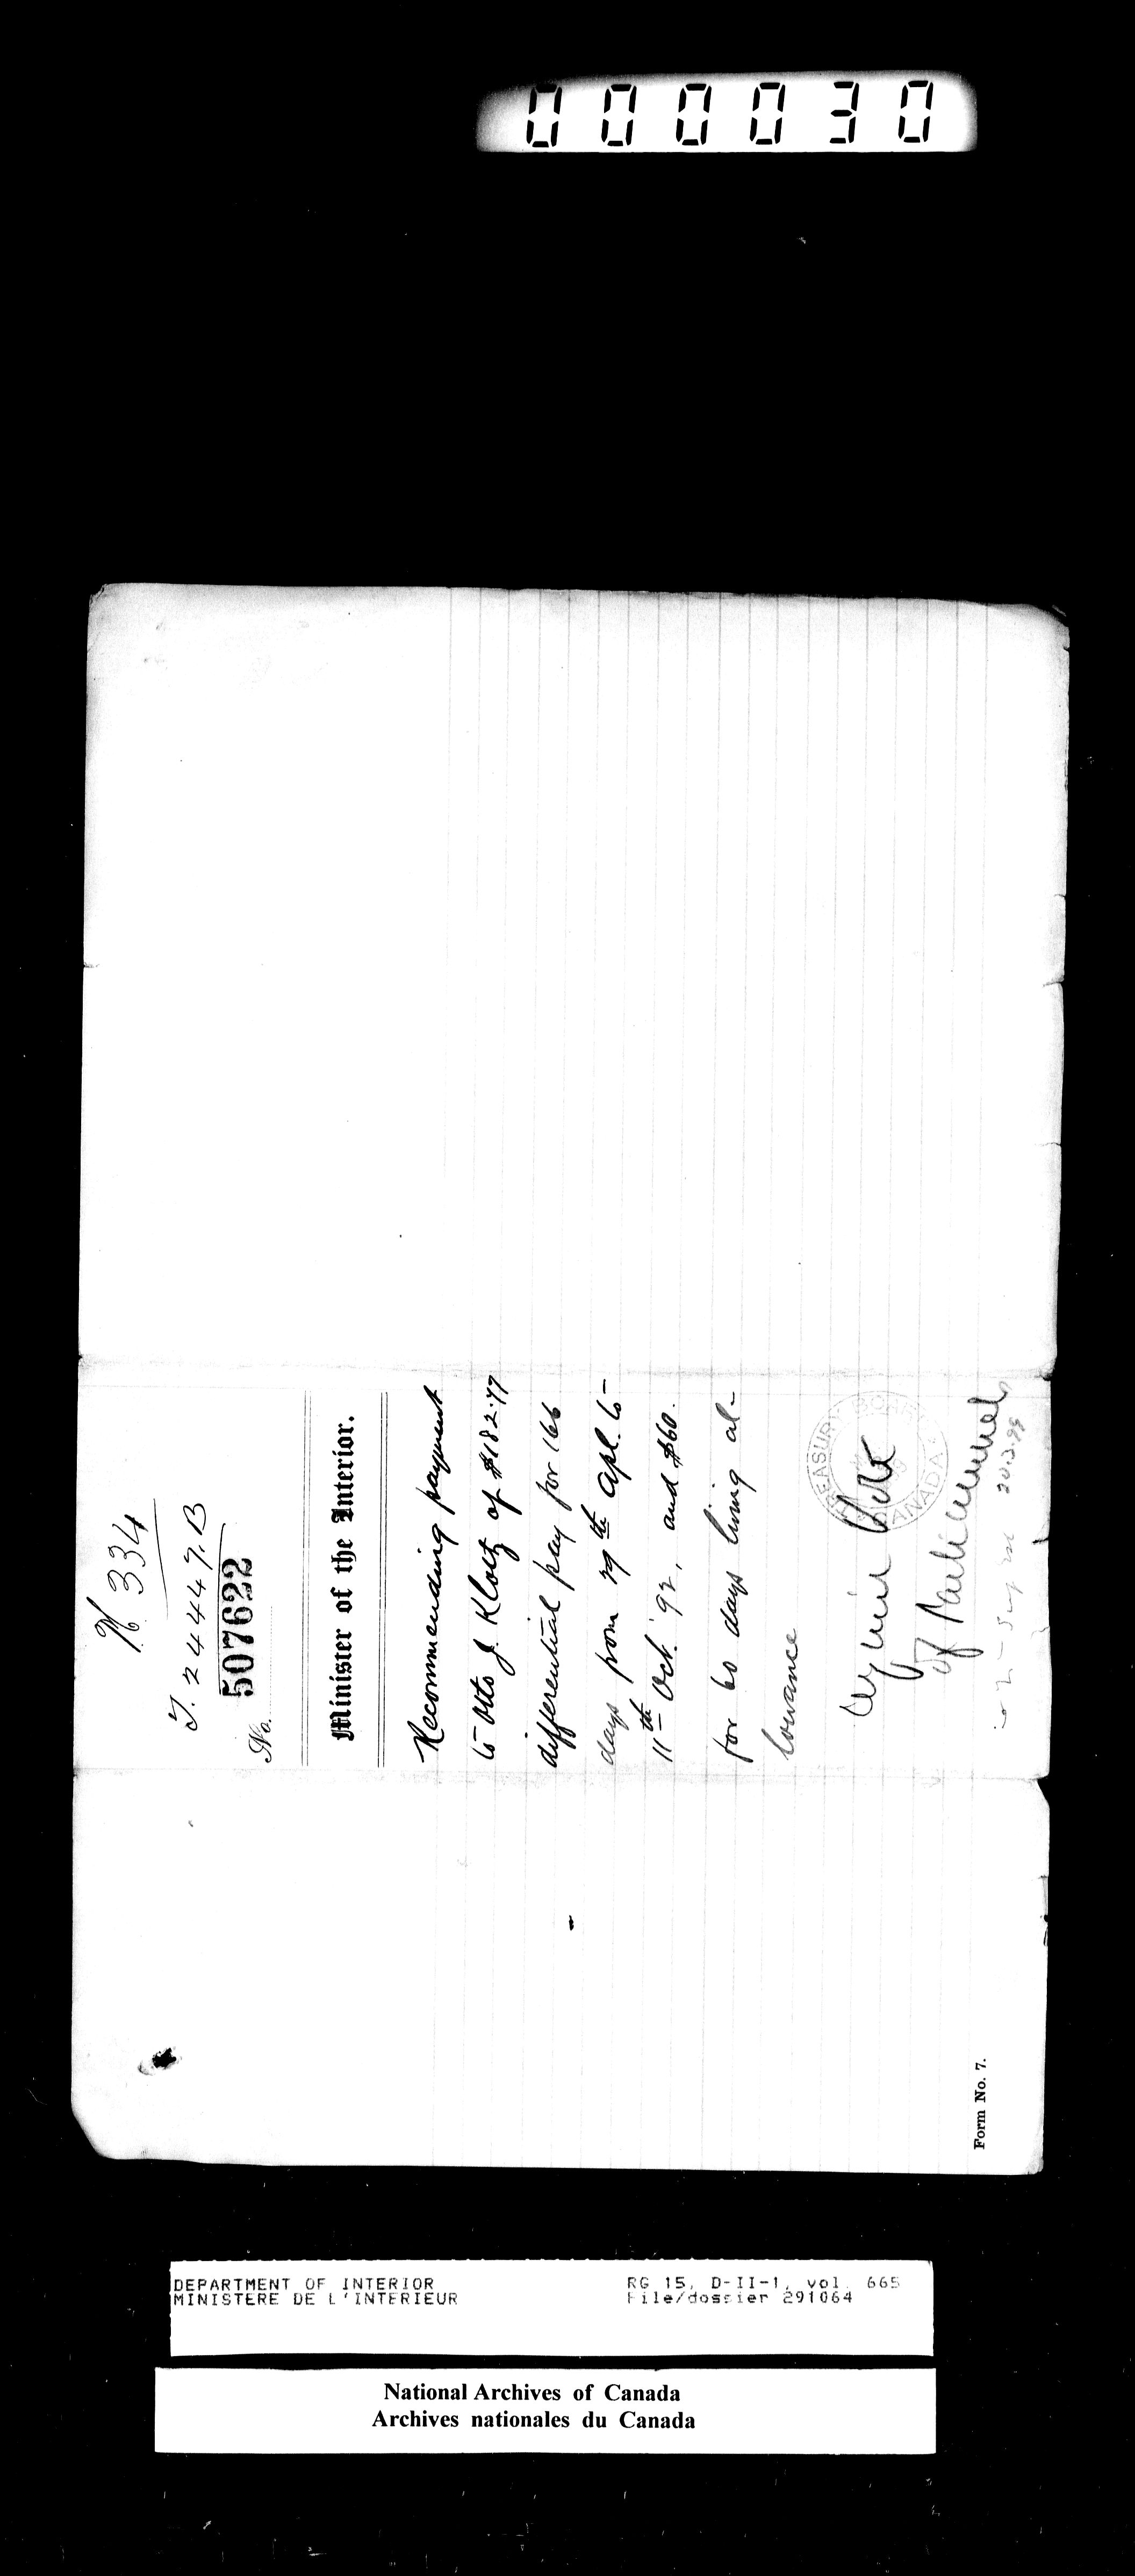 000030
N. 334
T. 24447.B
No. 507622
Minister of the Interior.
Recommending payment
to Otto J. Klotz of $182.77
differential pay for 166
days from 29th Apl. to
11th Oct. '92, and $60.
for 60 days living al-
lowance
Require Vote
of Parliament
TREASURY BOARD
CANADA
Form No. 7.
DEPARTMENT OF INTERIOR
MINISTERE DE L'INTERIEUR
RG 15, D-II-1, vol. 665
File/dossier 291064
National Archives of Canada
Archives nationales du Canada